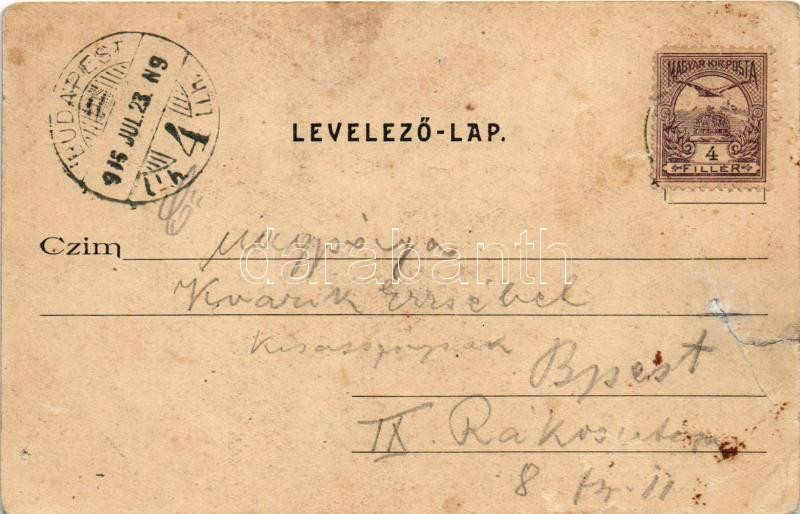 BUDAPEST
916 JUL. 23. N9
4
LEVELEZŐ-LAP.
MAGYAR KIR. POSTA
4
FILLÉR
Czim
Nagysága
darabanth
Kvarik Erzsébet
kisasszonynak
Bpest
IX. Rákos utca
8 fz. 11